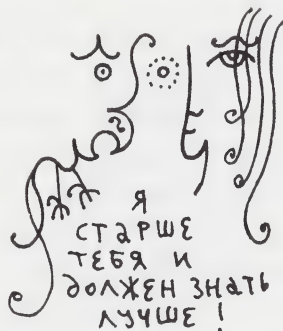 Я
СТАРШЕ
ТЕБЯ И
ДОЛЖЕН ЗНАТЬ
ЛУЧШЕ!